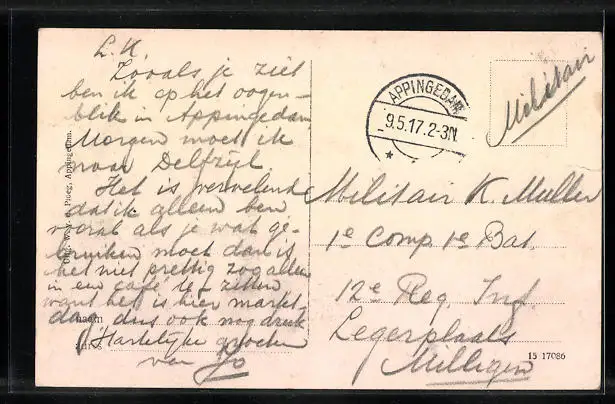 L.K.
Zooals je ziet
ben ik op het oogen-
blik in Appingedam
Morgen moet ik
naar Delfzijl.
Het is vervelend
dat ik alleen ben
vooral als je wat ge-
bruiken moet dan is
het niet prettig zoo alleen
in een café te zitten
want het is hier markt
dag, dus ook nog druk
Hartelijke groeten
van Jo
naam
adres
Ploeg, Appingedam.
APPINGEDAM
9.5.17.2-3N.
Militair
Militair K. Muller
1e Comp. 1e Bat.
12e Reg. Inf.
Legerplaats
Milligen
15 17086